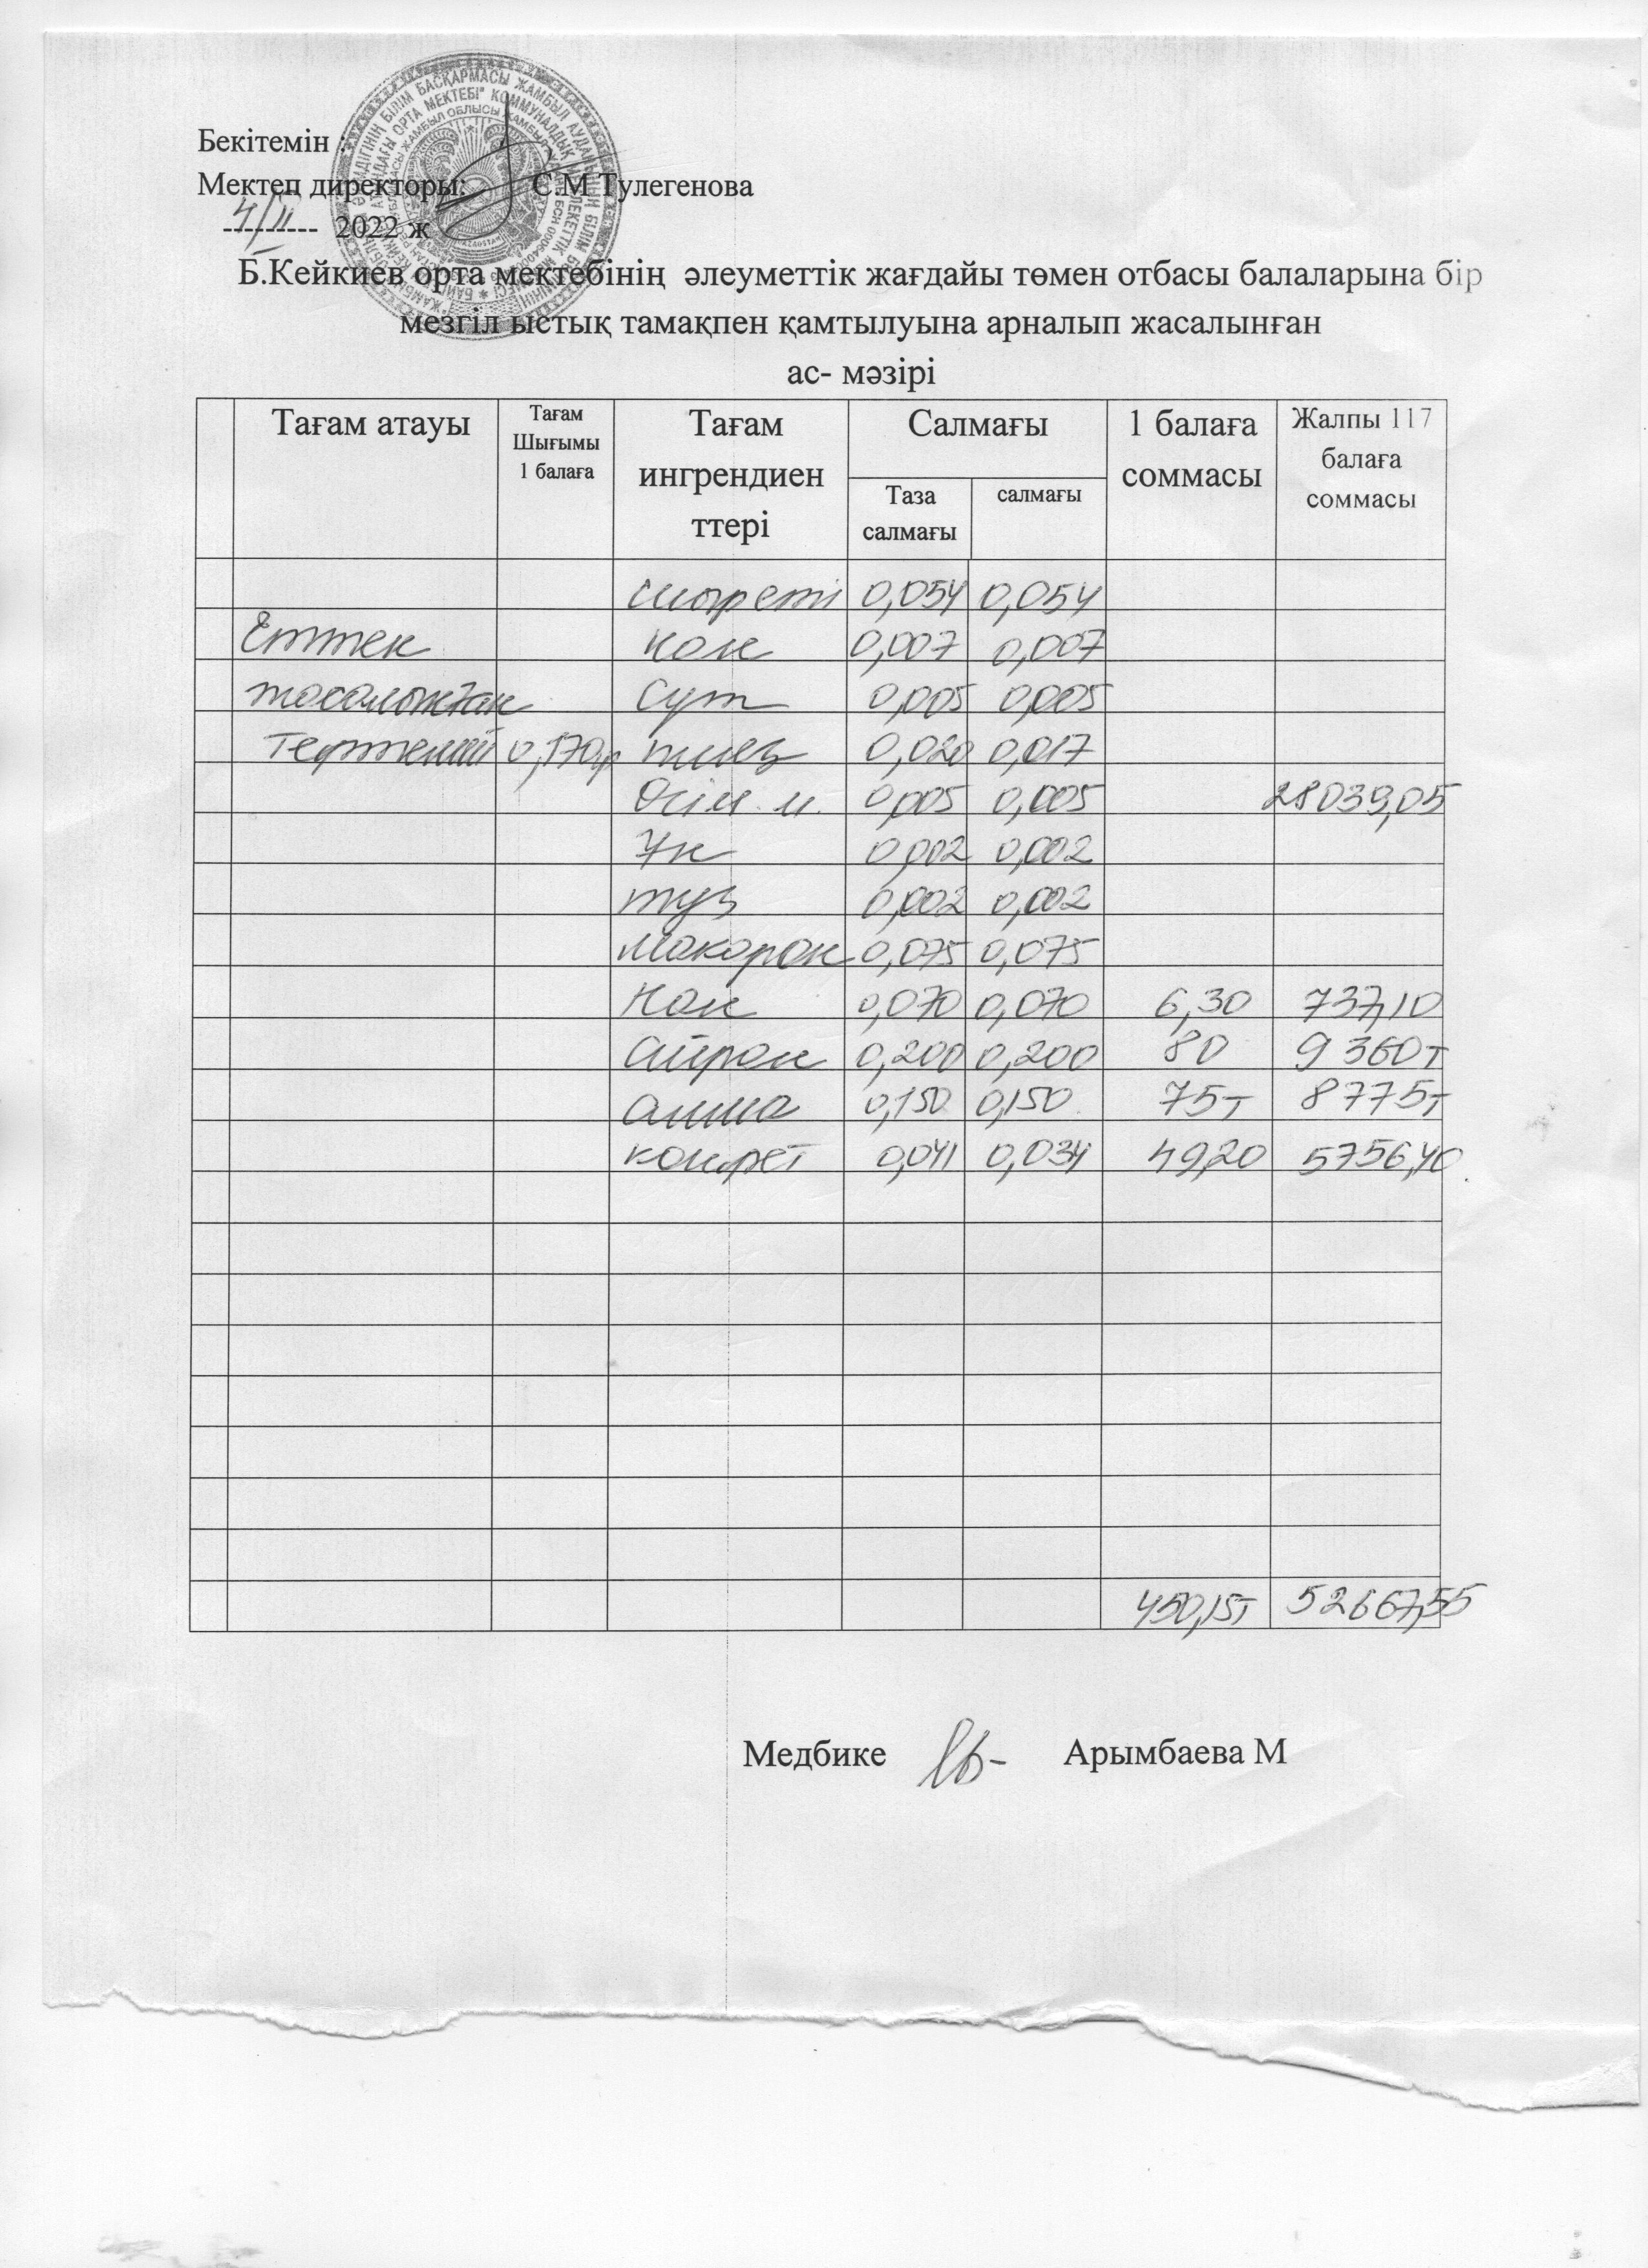 Бекітемін :
Мектеп директоры: С.М Тулегенова
4/II 2022 ж
Б.Кейкиев орта мектебінің әлеуметтік жағдайы төмен отбасы балаларына бір
мезгіл ыстық тамақпен қамтылуына арналып жасалынған
ас- мәзірі
Тағам атауы Тағам Шығымы 1 балаға Тағам ингрендиен ттері Салмағы 1 балаға соммасы Жалпы 117 балаға соммасы
Таза салмағы салмағы
сиыр еті 0,054 0,054
Еттен нан 0,007 0,007
жасалынған сүт 0,005 0,005
тефтелий 0,170гр пияз 0,020 0,017
Өсім. м. 0,005 0,005 28039,05
Ұн 0,002 0,002
тұз 0,002 0,002
макарон 0,075 0,075
Нан 0,070 0,070 6,30 737,10
айран 0,200 0,200 80 9360т
алма 0,150 0,150 75т 8775т
конфет 0,041 0,034 49,20 5756,40
450,15т 52667,55
Медбике Арымбаева М